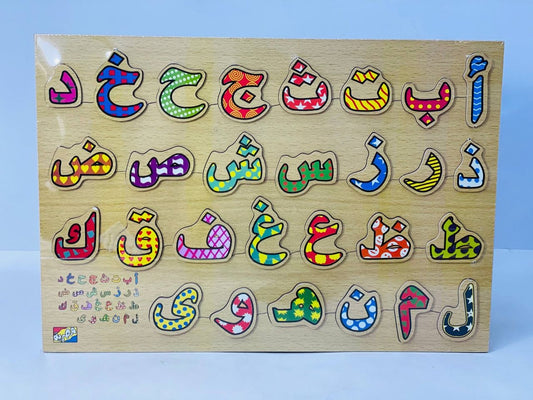 أ ب ت ث ج ح خ د
ذ ر ز س ش ص ض
ط ظ ع غ ف ق ك
ل م ن هـ و ي
أ ب ت ث ج ح خ د
ذ ر ز س ش ص ض
ط ظ ع غ ف ق ك
ل م ن هـ و ي